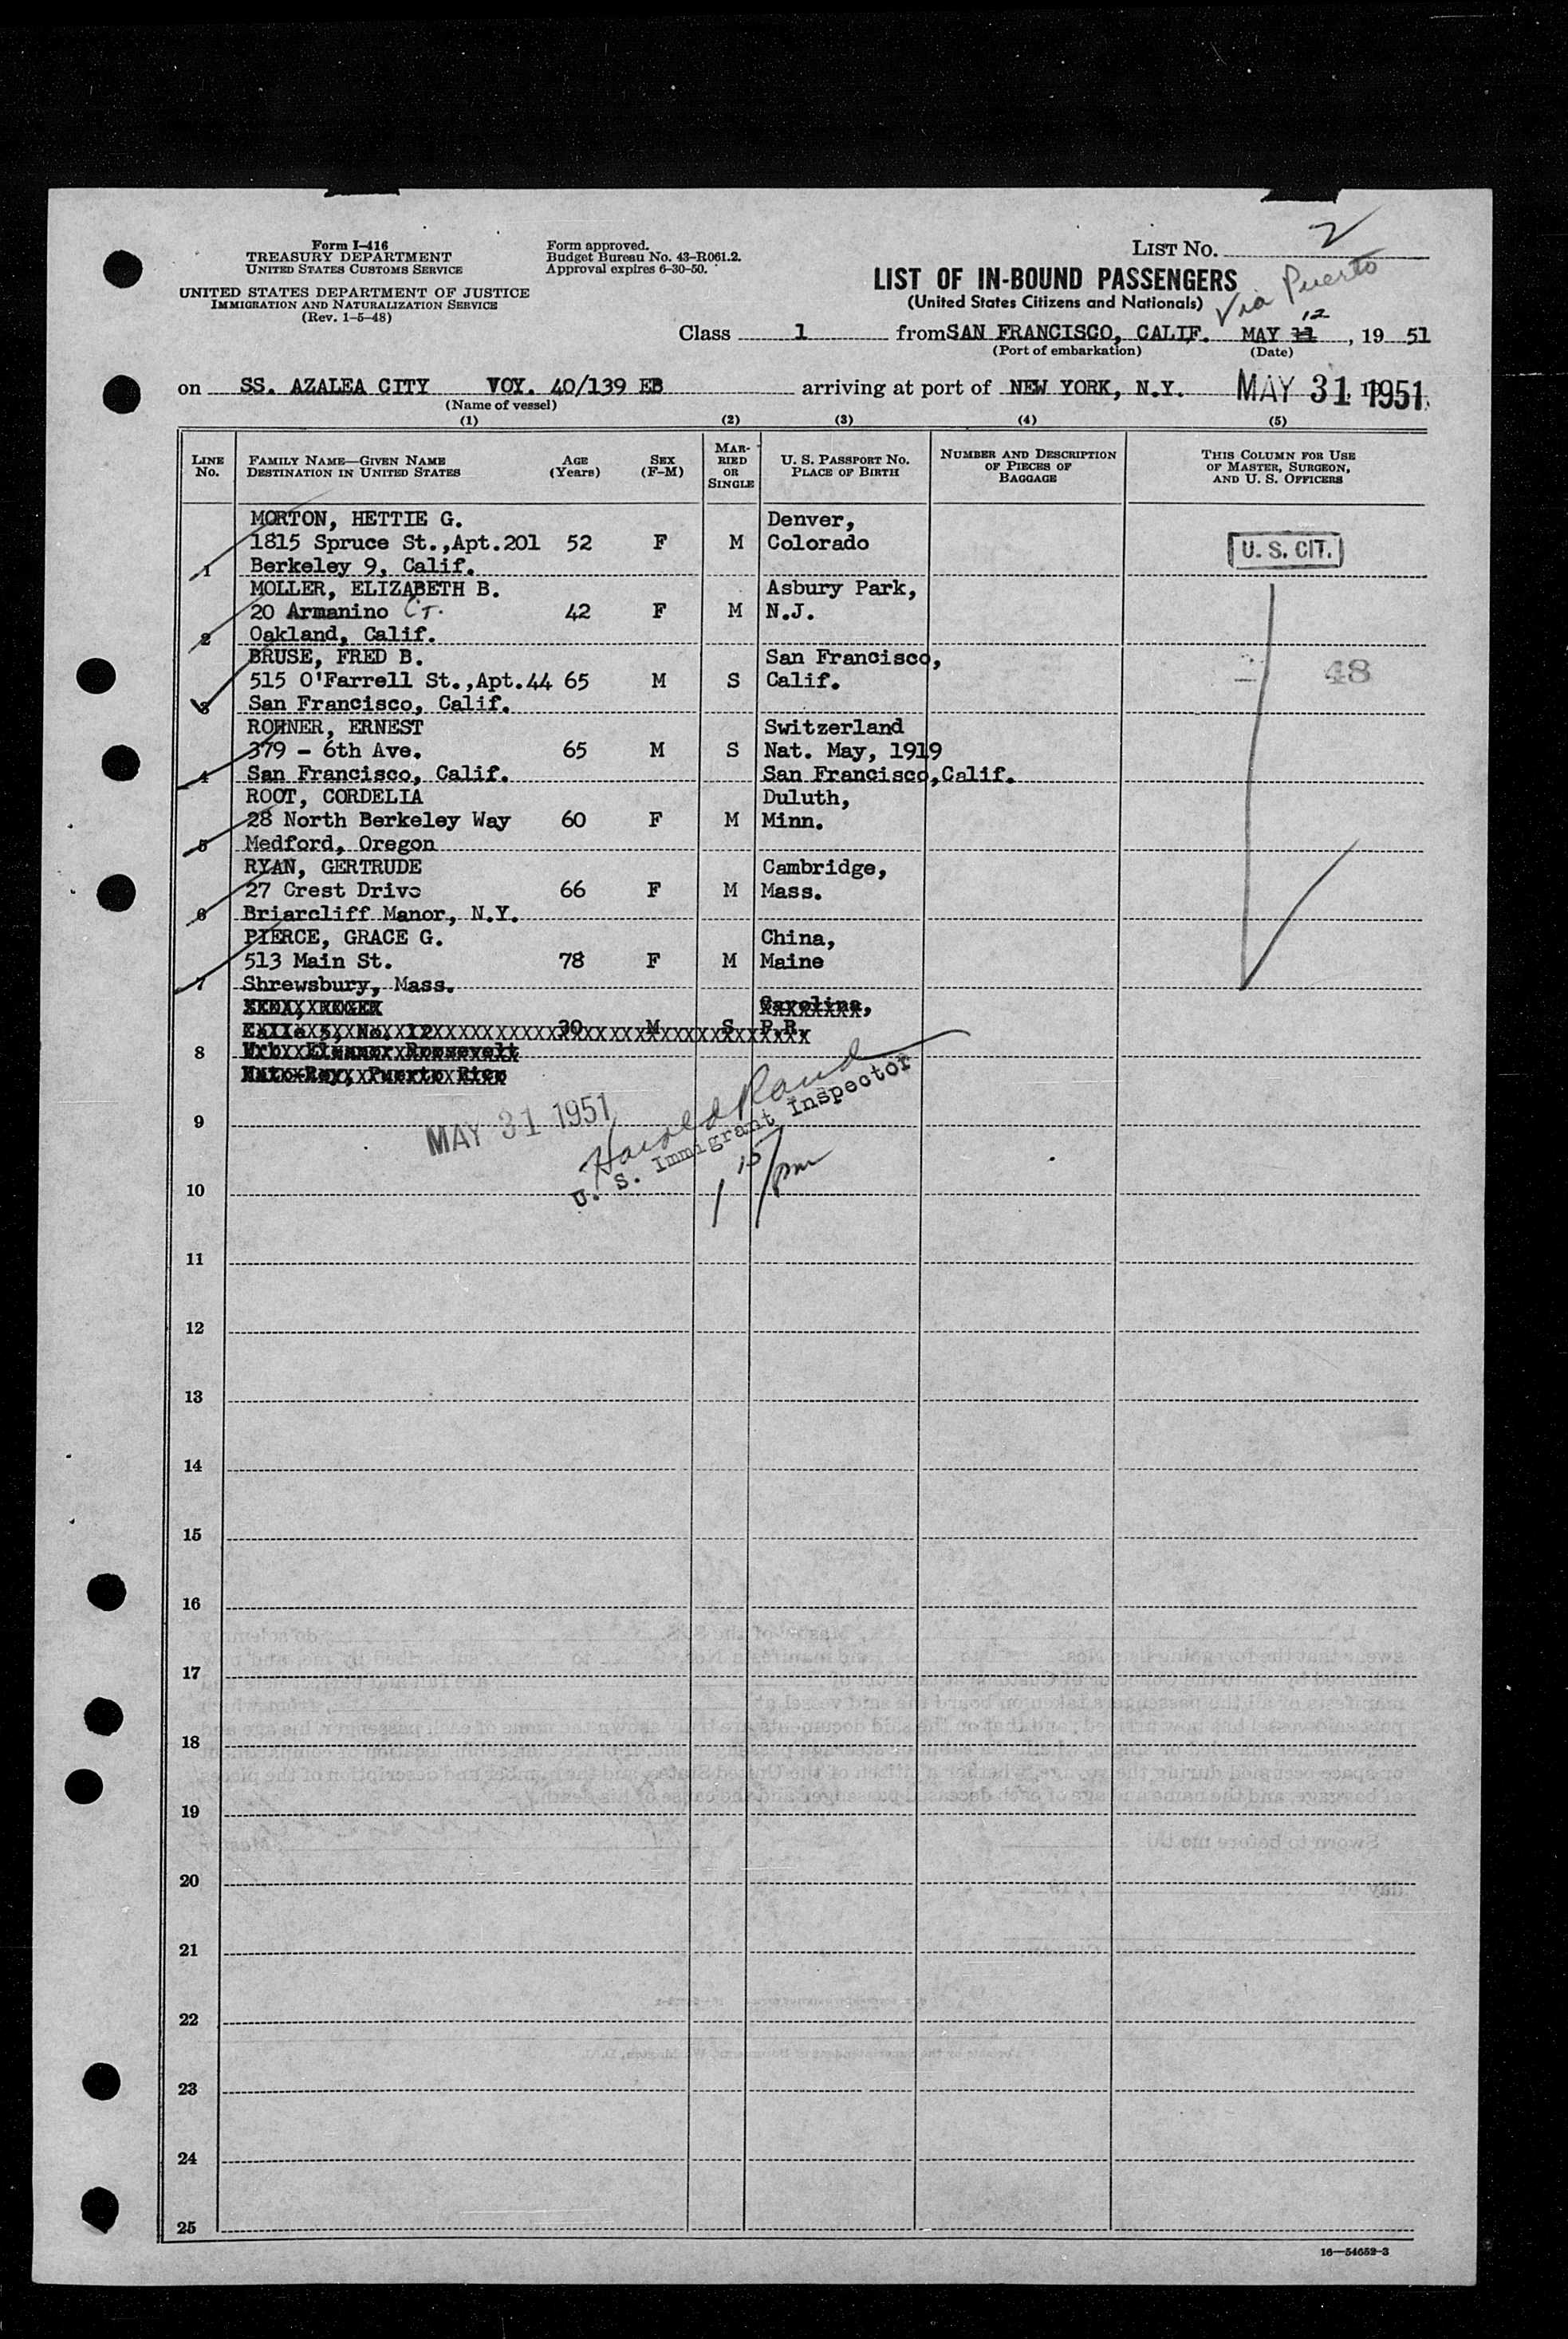 Form I-416
TREASURY DEPARTMENT
UNITED STATES CUSTOMS SERVICE
UNITED STATES DEPARTMENT OF JUSTICE
IMMIGRATION AND NATURALIZATION SERVICE
(Rev. 1-5-48)
Form approved.
Budget Bureau No. 43-R061.2.
Approval expires 6-30-50.
LIST NO. 2
LIST OF IN-BOUND PASSENGERS
(United States Citizens and Nationals)
Via Puerto
12
Class 1 from SAN FRANCISCO, CALIF. MAY 11, 19 51
(Port of embarkation) (Date)
on SS. AZALEA CITY VOY. 40/139 EB arriving at port of NEW YORK, N.Y. MAY 31 1951
(Name of vessel)
(1) (2) (3) (4) (5)
LINE No.
FAMILY NAME—GIVEN NAME
DESTINATION IN UNITED STATES
AGE
(Years)
SEX
(F-M)
MARRIED OR SINGLE
U. S. PASSPORT NO.
PLACE OF BIRTH
NUMBER AND DESCRIPTION
OF PIECES OF
BAGGAGE
THIS COLUMN FOR USE
OF MASTER, SURGEON,
AND U. S. OFFICERS
MORTON, HETTIE G. Denver,
1815 Spruce St.,Apt.201 52 F M Colorado U. S. CIT.
1 Berkeley 9, Calif.
MOLLER, ELIZABETH B. Asbury Park,
20 Armanino CT. 42 F M N.J.
2 Oakland, Calif.
BRUSE, FRED B. San Francisco,
515 O'Farrell St.,Apt.44 65 M S Calif. 48
3 San Francisco, Calif.
ROHNER, ERNEST Switzerland
379 - 6th Ave. 65 M S Nat. May, 1919
4 San Francisco, Calif. San Francisco,Calif.
ROOT, CORDELIA Duluth,
28 North Berkeley Way 60 F M Minn.
5 Medford, Oregon
RYAN, GERTRUDE Cambridge,
27 Crest Drive 66 F M Mass.
6 Briarcliff Manor, N.Y.
PIERCE, GRACE G. China,
513 Main St. 78 F M Maine
7 Shrewsbury, Mass.
Carolina,
Calle 5, No. 12 30 M S P.R.
8 Urb. Eleanor Roosevelt
Hato Rey, Puerto Rico
9 MAY 31 1951
Harold Rand
U. S. Immigrant Inspector
1 15/pm
10
11
12
13
14
15
16
17
18
19
20
21
22
23
24
25
16—54652-3